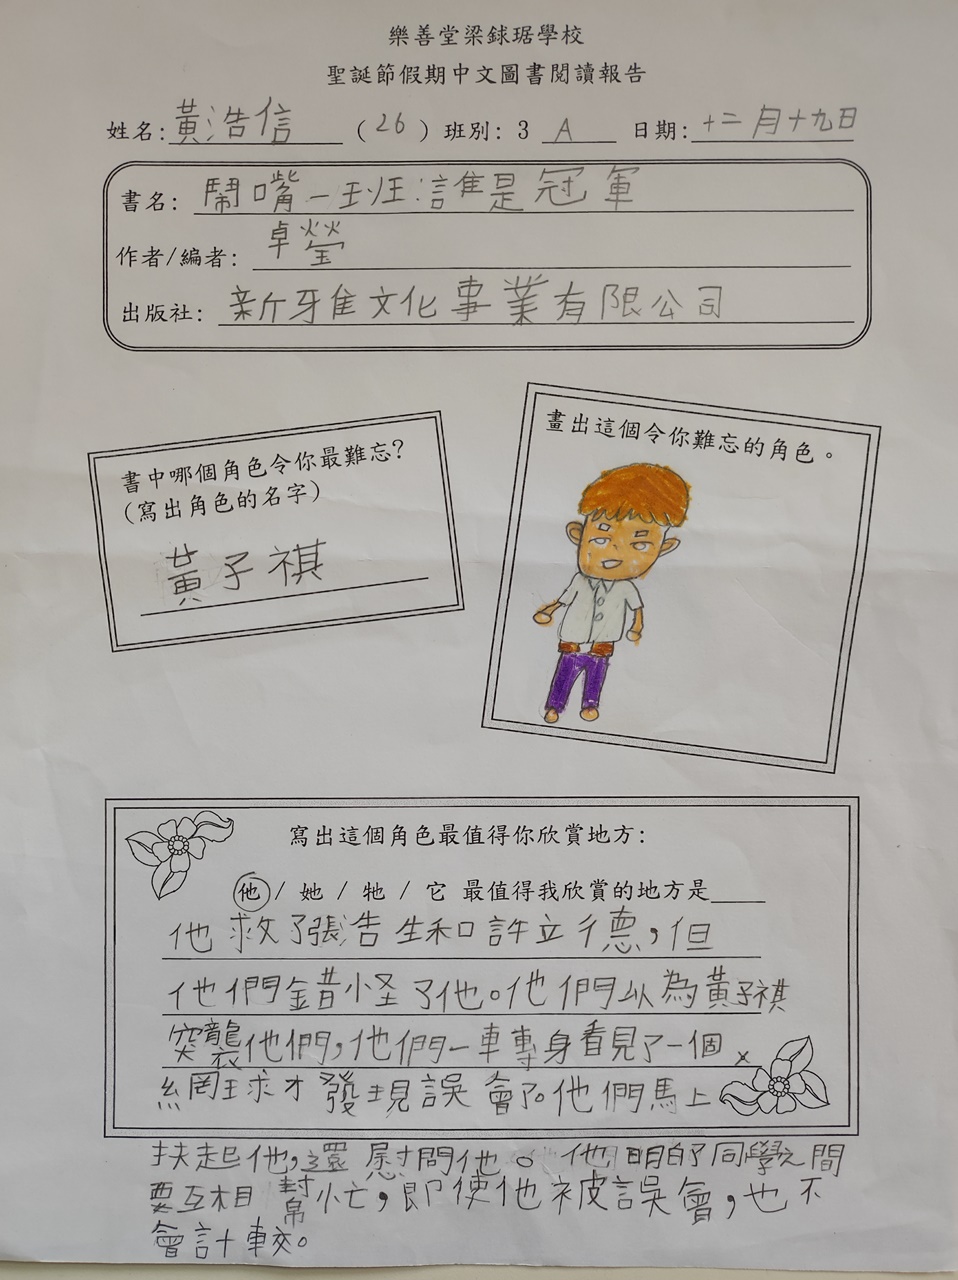 樂善堂梁銶琚學校
聖誕節假期中文圖書閱讀報告
姓名: 黃浩信 (26) 班別: 3 A 日期: 十二月十九日
書名: 鬧嘴一班:誰是冠軍
作者/編者: 卓瑩
出版社: 新牙隹文化事業有限公司
書中哪個角色令你最難忘?
(寫出角色的名字)
黃子祺
畫出這個令你難忘的角色。
寫出這個角色最值得你欣賞地方:
他 / 她 / 牠 / 它 最值得我欣賞的地方是
他救了張浩生和許立德,但
他們錯怪了他。他們以為黃子祺
突襲他們,他們一車專身看見了一個
網球才發現誤會了。他們馬上
扶起他,還慰問他。他明的了同學之間
要互相幫忙,即使他被誤會,也不
會計較。